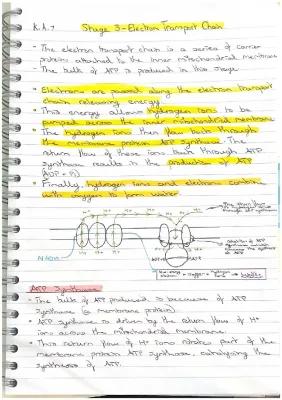 K.A.7 Stage 3 - Electron Transport Chain
• The electron transport chain is a series of carrier
proteins attached to the inner mitochondrial membrane
• The bulk of ATP is produced in this stage.
• Electrons are passed along the electron transport
chain releasing energy
• This energy allows hydrogen ions to be
pumped across the inner mitochondrial membrane
• The hydrogen ions then flow back through
the membrane protein ATP Synthase. The
return flow of these ions back through ATP
synthase results in the production of ATP
(ADP + Pi)
• Finally, hydrogen ions and electrons combine
with oxygen to form water
H+ H+ H+ H+
ATP Synthase
• The bulk of ATP produced is because of ATP
Synthase (a membrane protein)
• ATP synthase is driven by the return flow of H+
ions across the mitochondrial membrane.
• This return flow of H+ ions rotates part of the
membrane protein ATP synthase, catalysing the
synthesis of ATP.